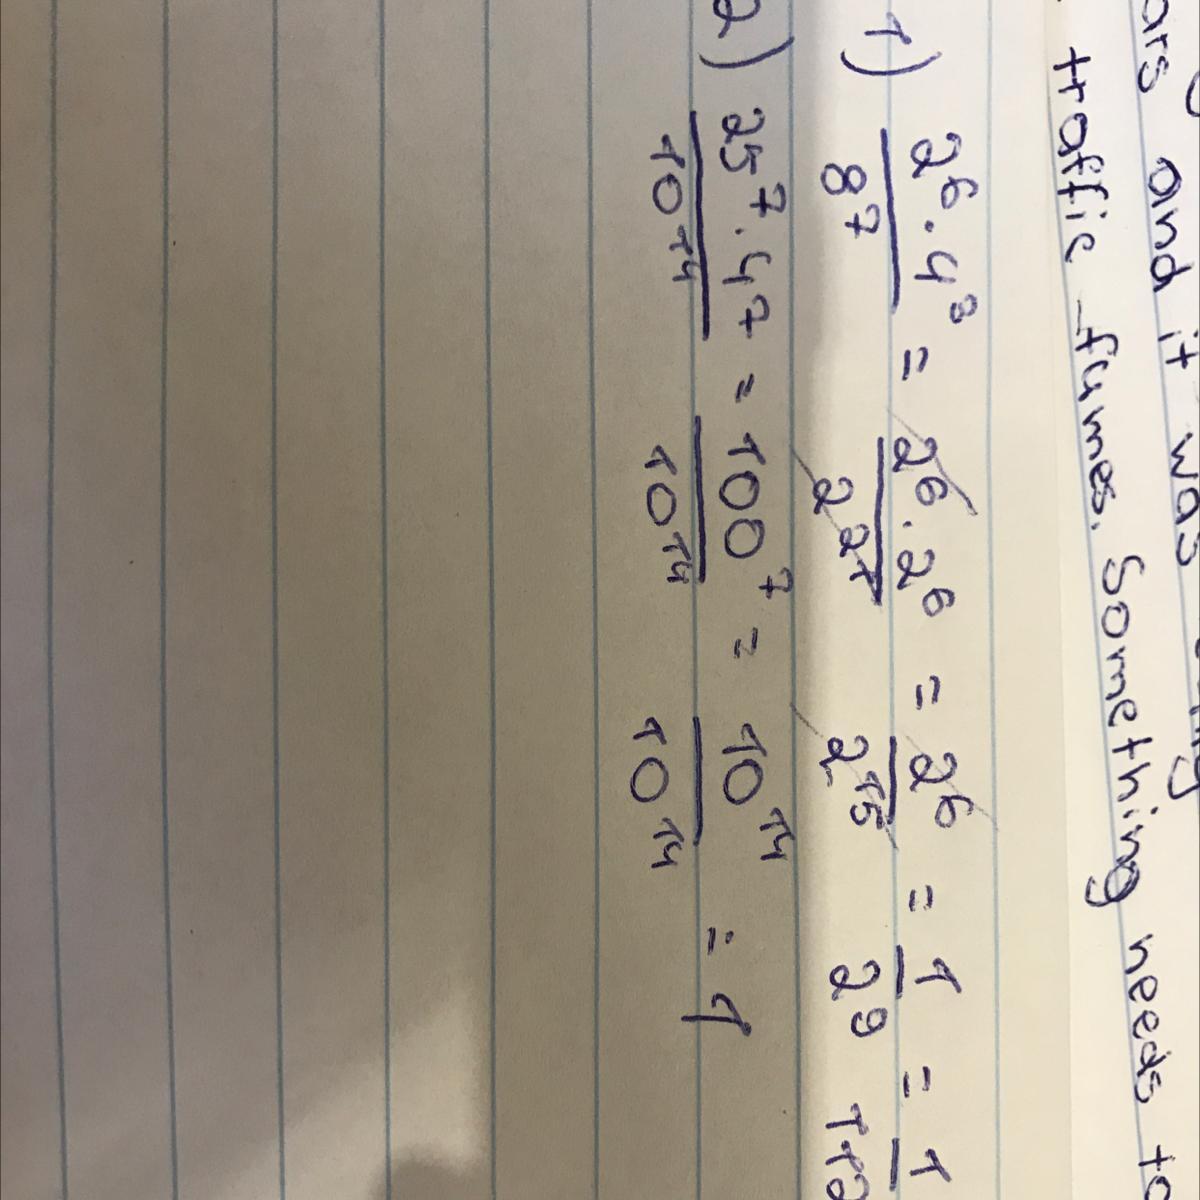 ars and it was
traffic fumes. Something needs to
1) 2⁶·4³/8⁷ = 2⁶·2⁶/2²¹ = 2⁶/2¹⁵ = 1/2⁹ = 1
2) 25⁷·4⁷/10¹⁴ = 100⁷/10¹⁴ = 10¹⁴/10¹⁴ = 1